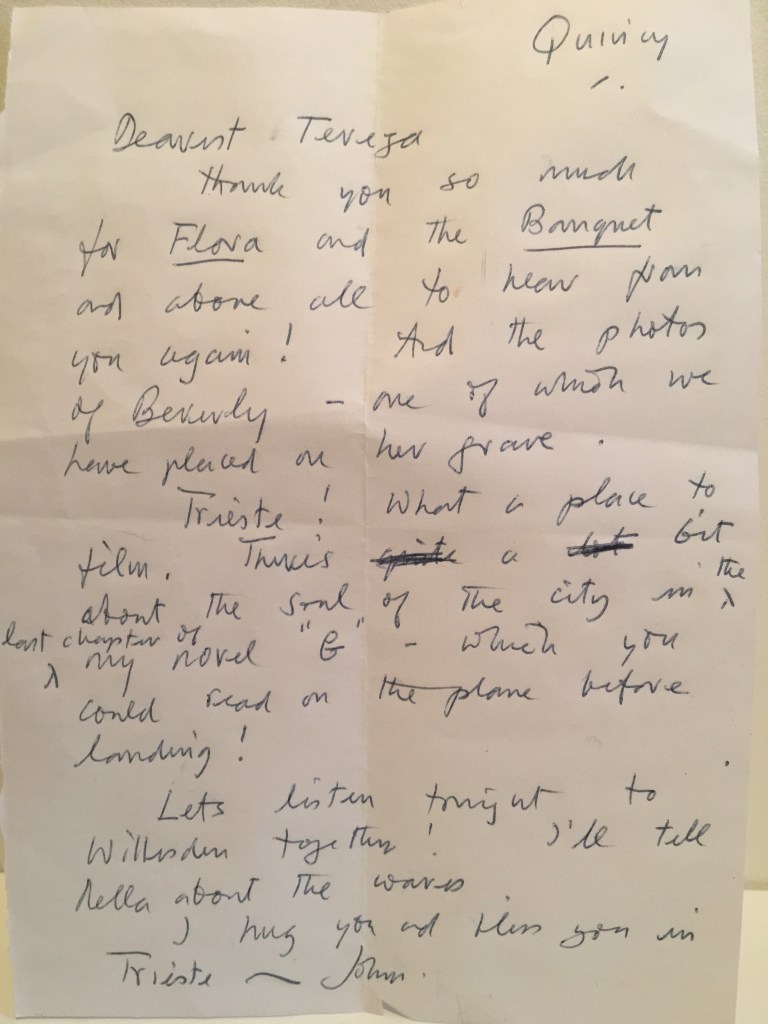 Quincy
Dearest Tereza
Thank you so much
for Flora and the Banquet
and above all to hear from
you again! And the photos
of Beverly - one of which we
have placed on her grave.
Trieste! What a place to
film. There's quite a lot bit
about the soul of the city in the
last chapter of
my novel "G" - which you
could read on the plane before
landing!
Lets listen tonight to
Willesden together! I'll tell
Nella about the waves
I hug you and bless you in
Trieste ~ John.